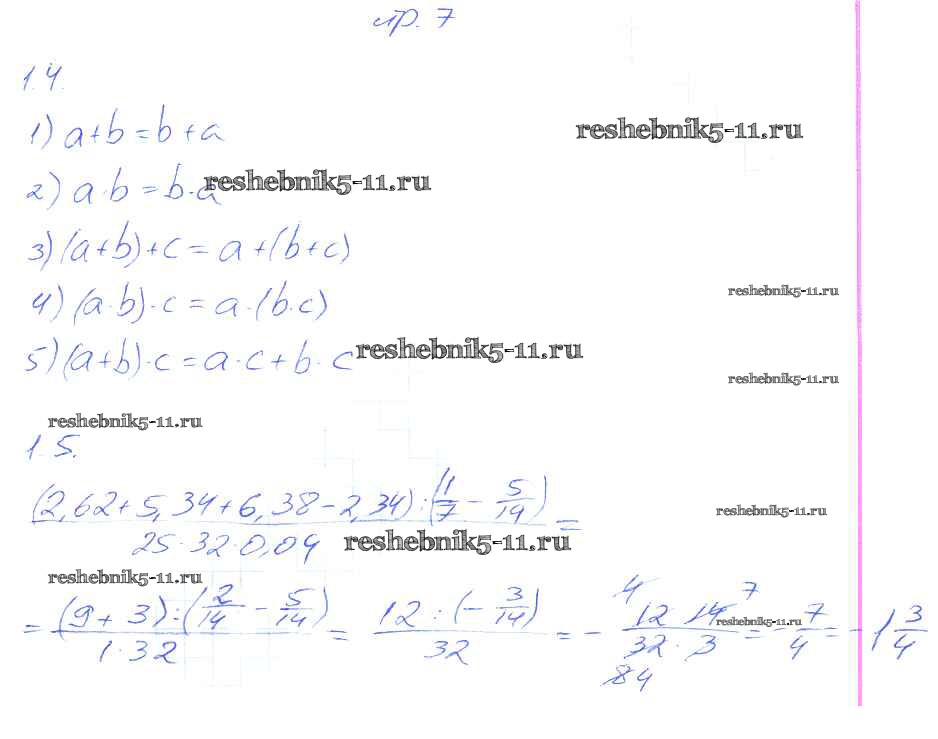 стр. 7
1.4.
1) a+b=b+a
reshebnik5-11.ru
2) a·b=b·a
reshebnik5-11.ru
3) (a+b)+c=a+(b+c)
4) (a·b)·c=a·(b·c)
reshebnik5-11.ru
5) (a+b)·c=a·c+b·c
reshebnik5-11.ru
reshebnik5-11.ru
reshebnik5-11.ru
1.5.
(2,62+5,34+6,38-2,34):(1/7 - 5/14) / 25·32·0,04 =
reshebnik5-11.ru
reshebnik5-11.ru
reshebnik5-11.ru
= (9+3):(2/14 - 5/14) / 1·32 = 12:(-3/14) / 32 = - 12 · 14 / 32·3 = -7/4 = -1 3/4
4 7
reshebnik5-11.ru
84